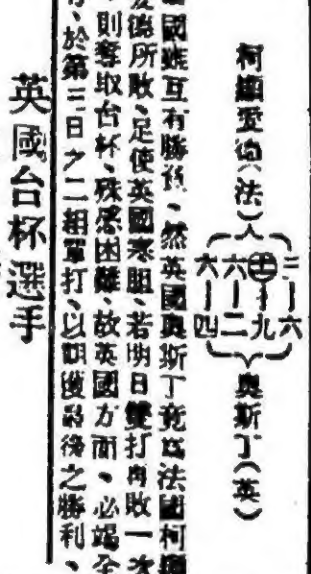 柯顯愛德(法)
三—六
十一—九
六—二
六—四
奧斯丁(英)
國雖互有勝負、然英國奧斯丁竟爲法國柯顯
愛德所敗、足使英國寒胆、若明日雙打再敗一次
則奪取台杯、殊感困難、故英國方面、必竭全
、於第三日之二組單打、以期獲最後之勝利、
英國台杯選手